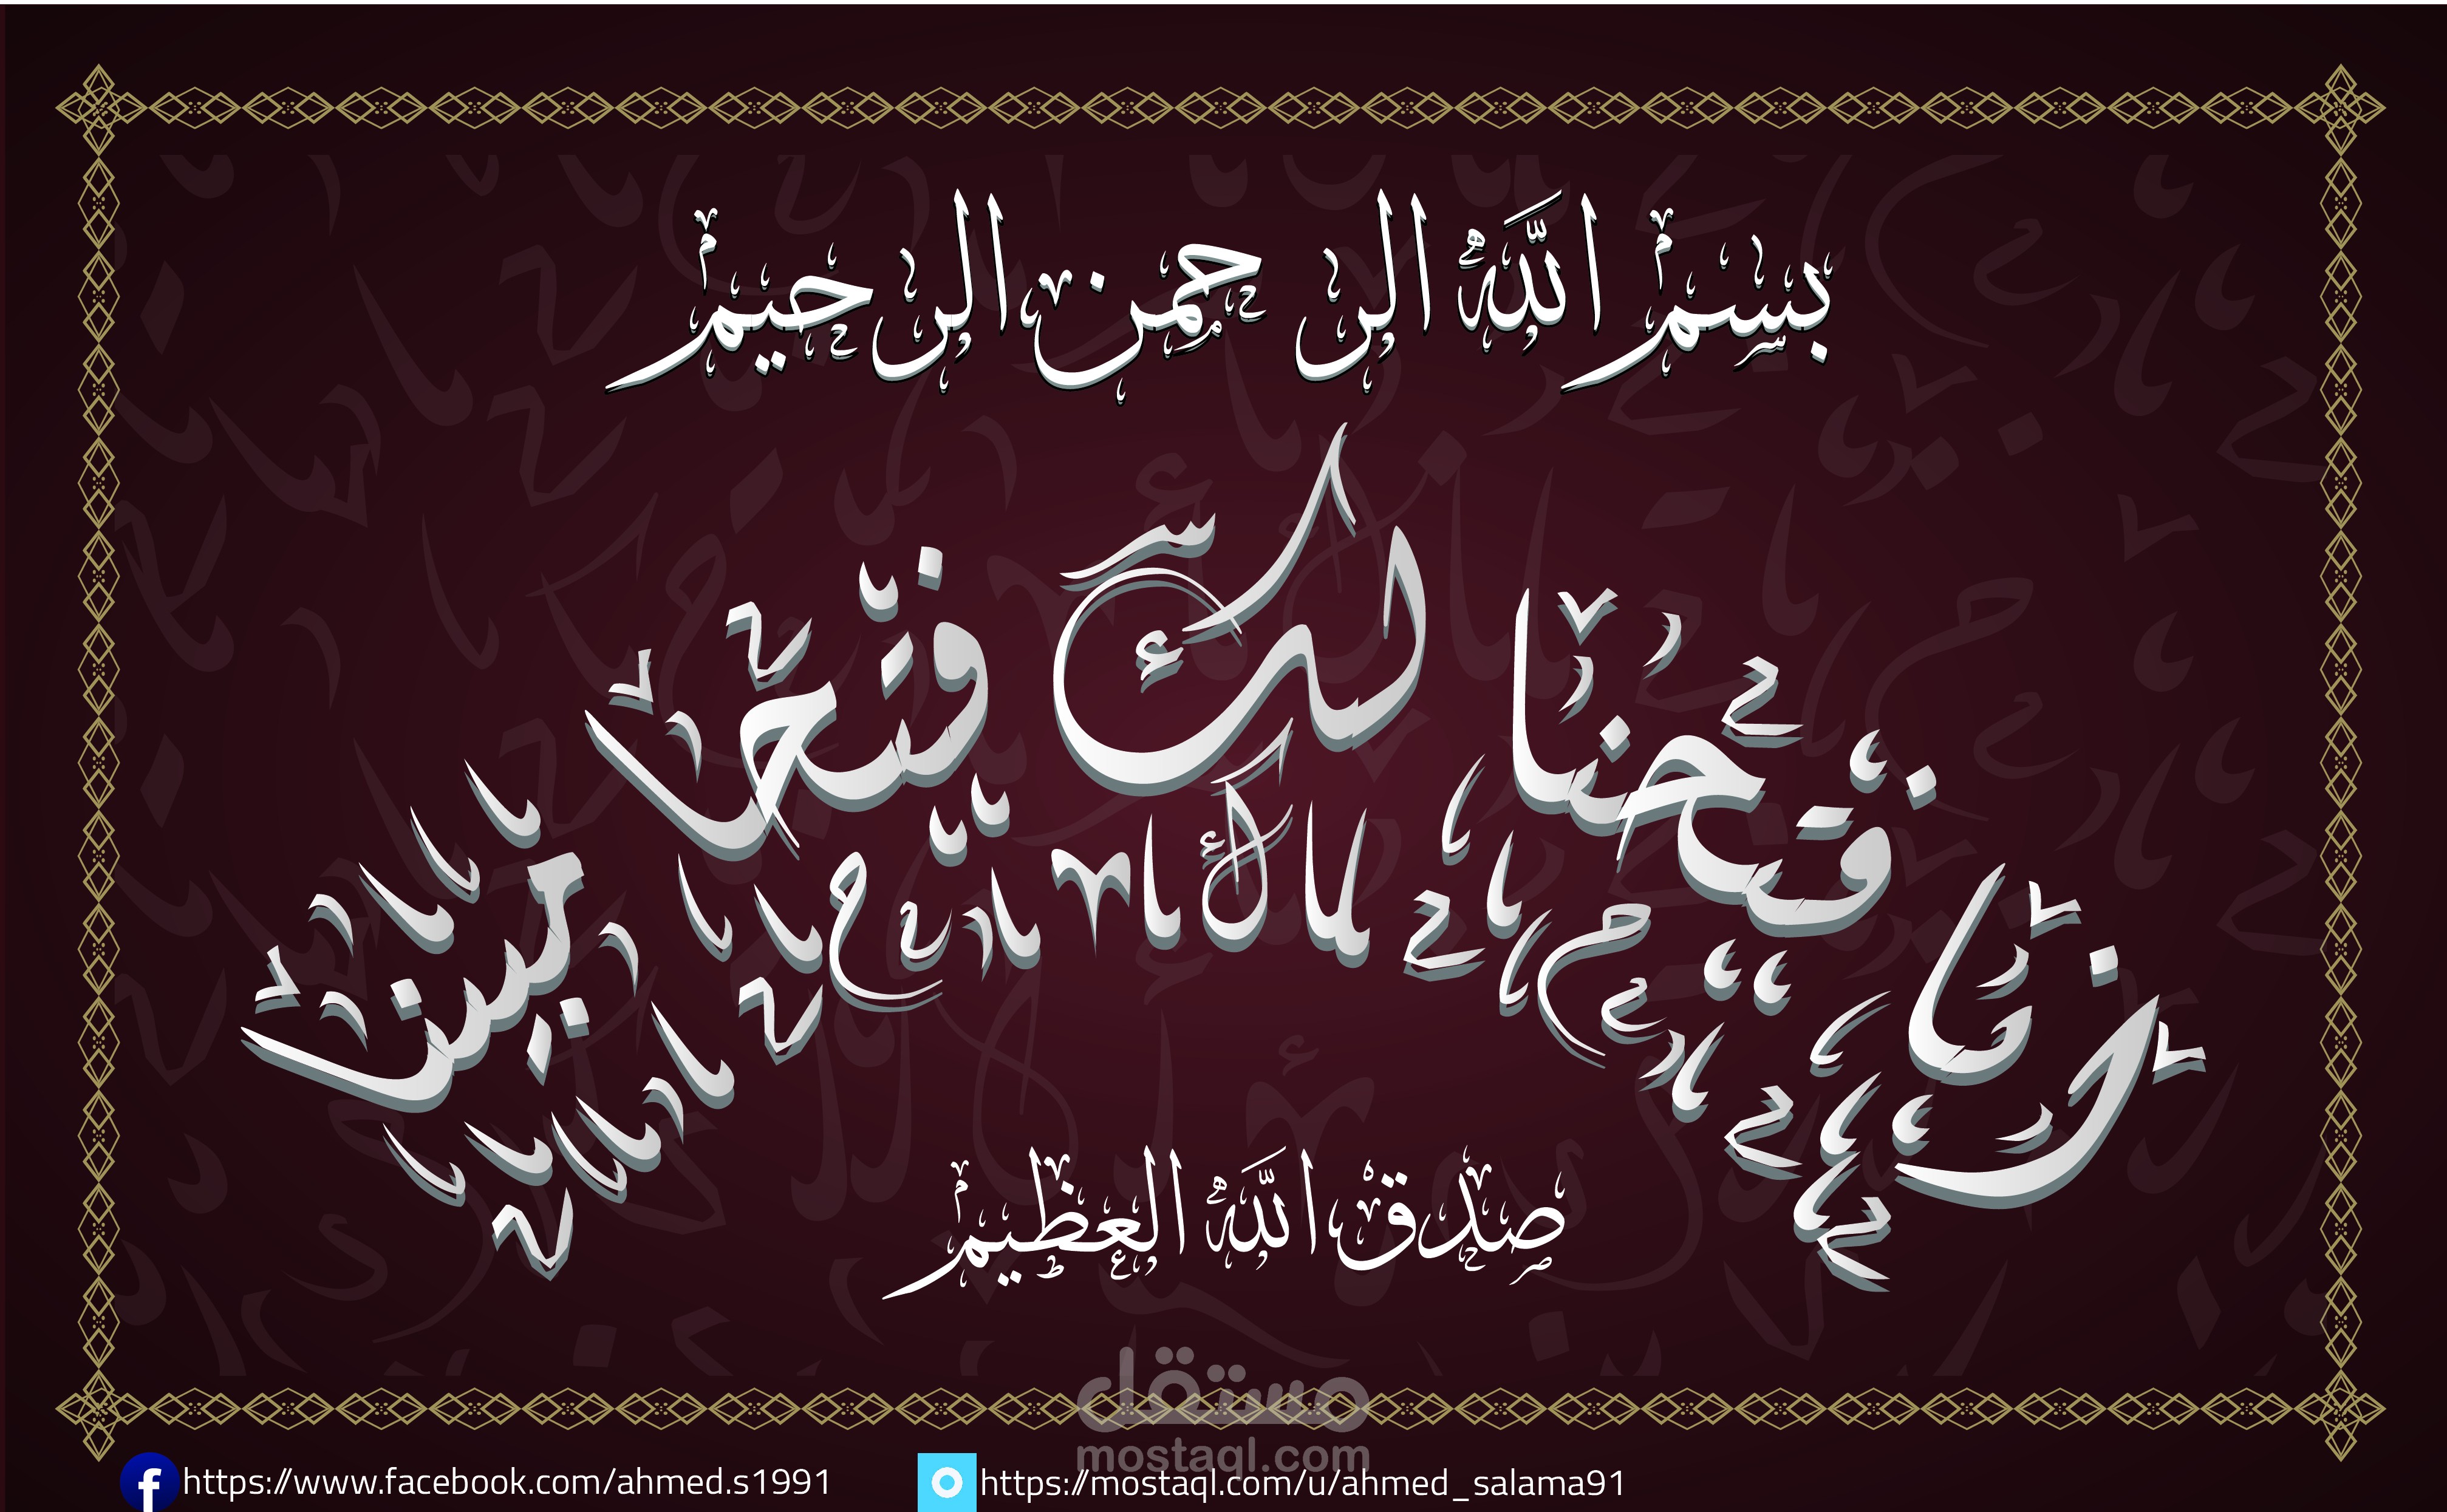 بسم الله الرحمن الرحيم
إنا فتحنا لك فتحا مبينا
صدق الله العظيم
مستقل
mostaql.com
https://www.facebook.com/ahmed.s1991
https://mostaql.com/u/ahmed_salama91